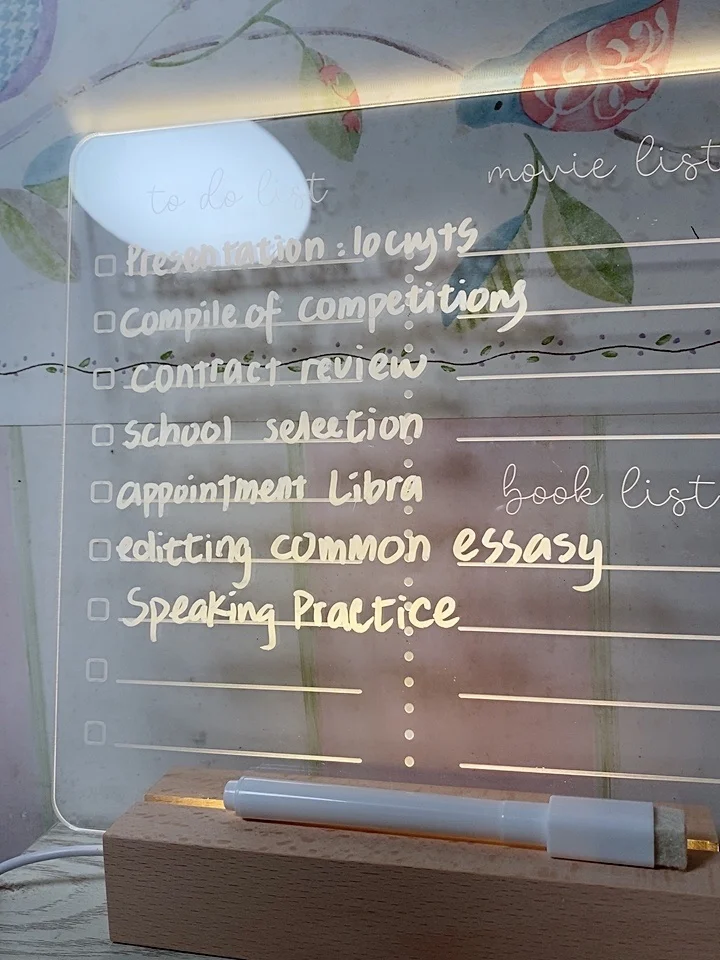 to do list
movie list
Presentation : locusts
Compile of competitions
contract review
School selection
appointment Libra
editting common essasy
book list
Speaking Practice